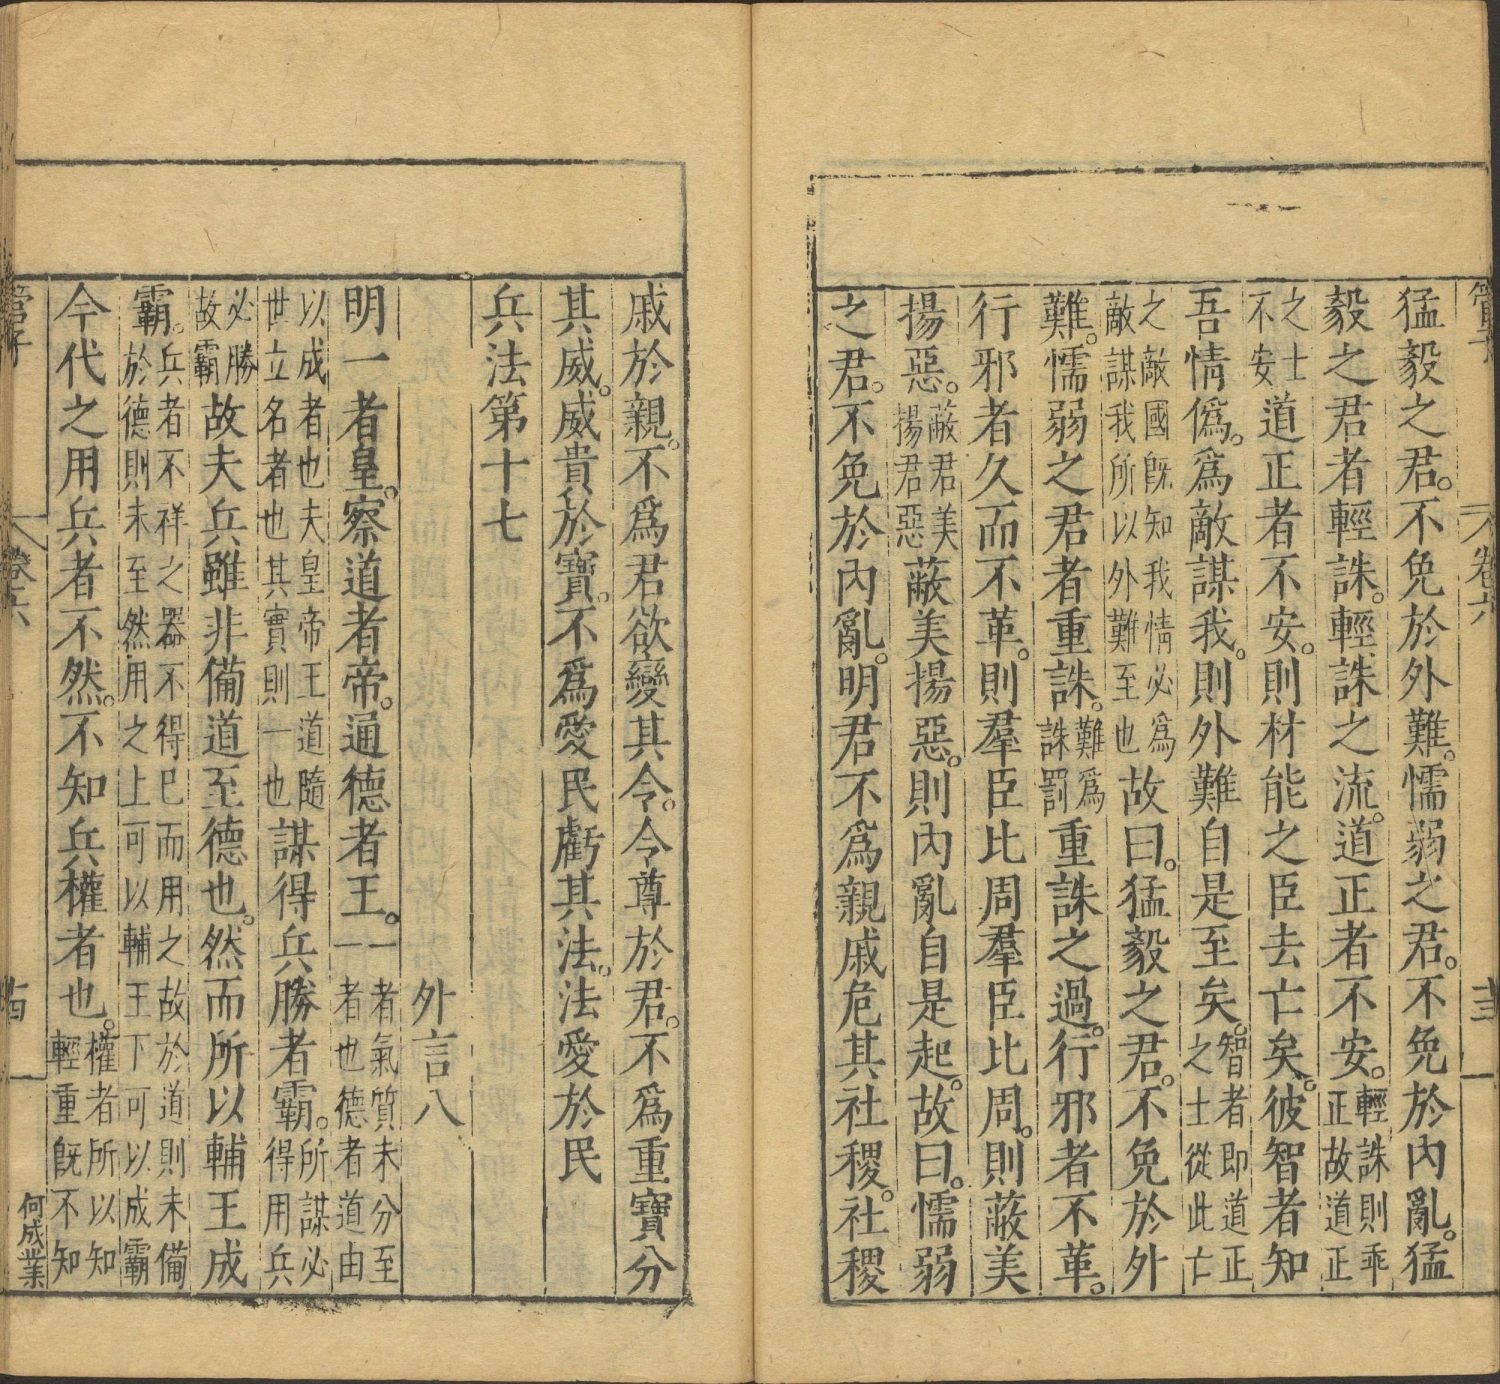 管子
卷六
猛毅之君。不免於外難。懦弱之君。不免於內亂。猛
毅之君者輕誅。輕誅之流。道正者不安。輕誅則乖正故道正
之士不安道正者不安。則材能之臣去亡矣。彼智者知
吾情僞。爲敵謀我。則外難自是至矣。智者即道正之士從此亡
之敵國旣知我情必爲敵謀我所以外難至也故曰。猛毅之君。不免於外
難。懦弱之君者重誅。難爲誅罰重誅之過。行邪者不革。
行邪者久而不革。則羣臣比周。羣臣比周。則蔽美
揚惡。蔽君美揚君惡蔽美揚惡。則內亂自是起。故曰。懦弱
之君。不免於內亂。明君不爲親戚危其社稷。社稷
戚於親。不爲君欲變其令。令尊於君。不爲重寶分
其威。威貴於寶。不爲愛民虧其法。法愛於民
兵法第十七
外言八
明一者皇。察道者帝。通德者王。一者氣質未分至一者也德者道由
以成者也夫皇帝王道隨世立名者也其實則一也謀得兵勝者霸。所謀必得用兵
必勝故霸故夫兵雖非備道至德也。然而所以輔王成
霸。兵者不祥之器不得已而用之故於道則未備於德則未至然用之上可以輔王下可以成霸
今代之用兵者不然。不知兵權者也。權者所以知輕重旣不知
管子
卷六
何成業